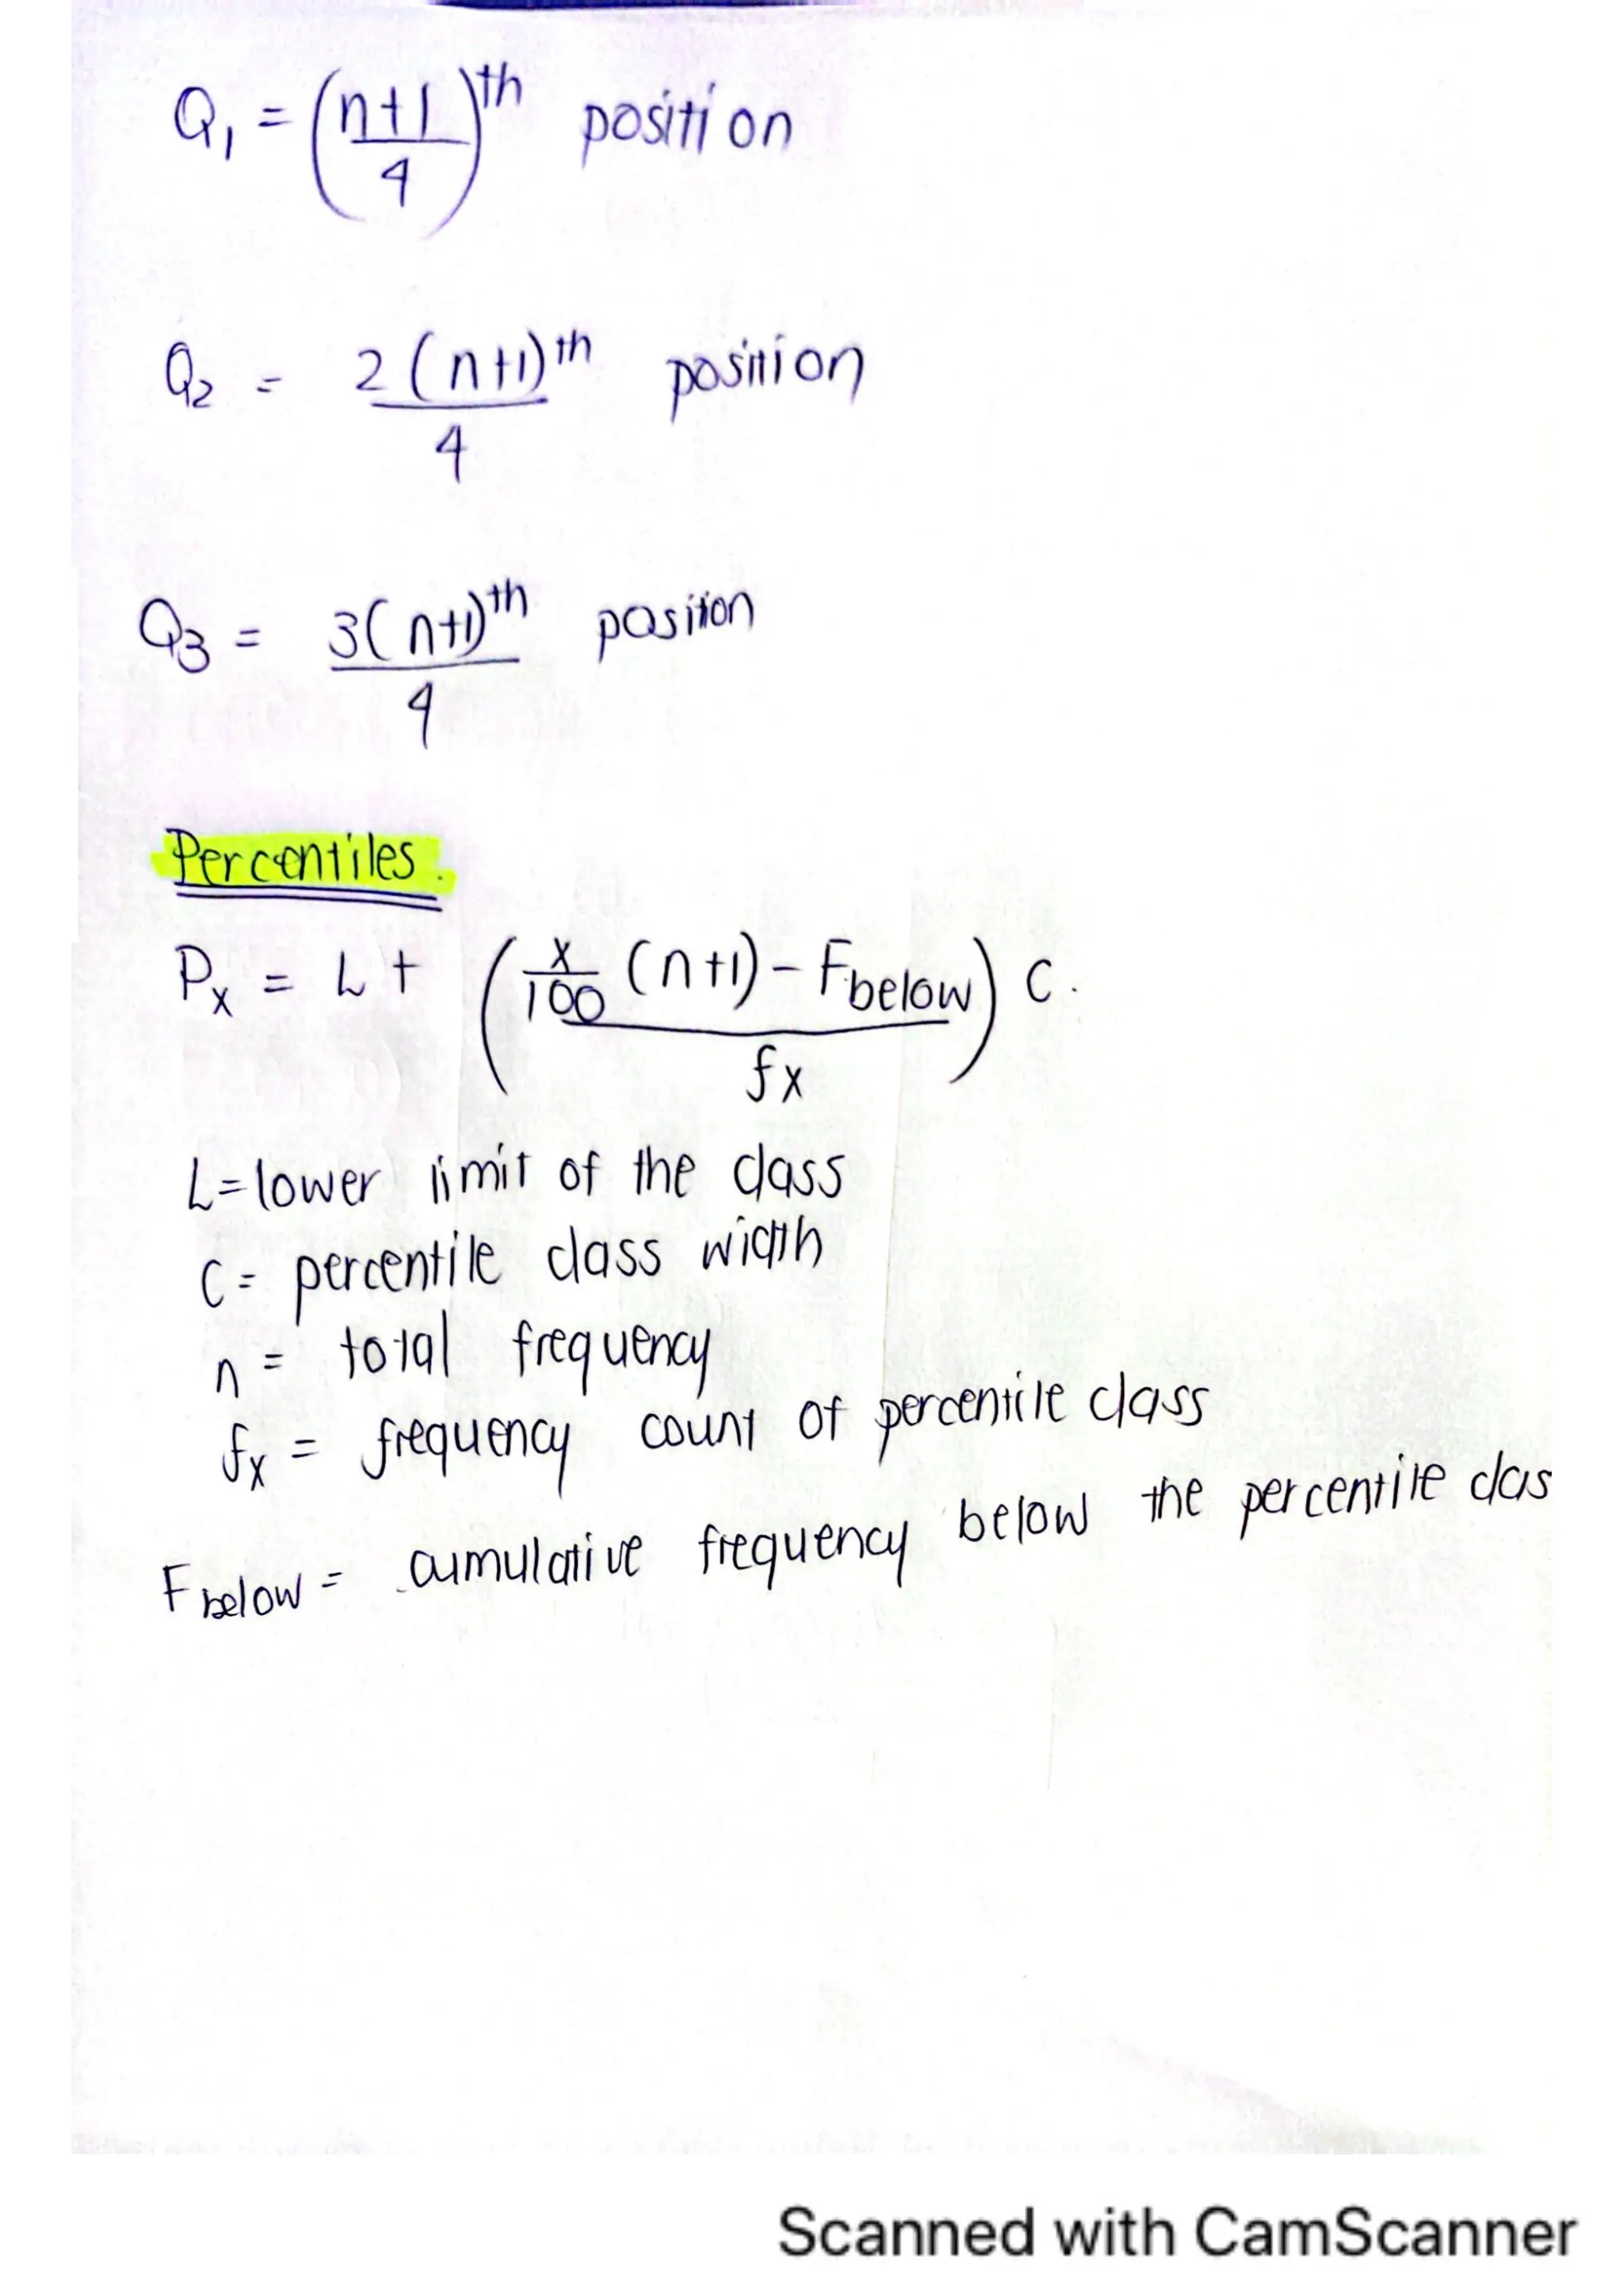 Q₁ = (n+1/4)ᵗʰ position
Q₂ = 2(n+1)ᵗʰ/4 position
Q₃ = 3(n+1)ᵗʰ/4 position
Percentiles.
Pₓ = L + (x/100 (n+1) - F below / fx) C.
L = lower limit of the class
C = percentile class width
n = total frequency
fx = frequency count of percentile class
F below = cumulative frequency below the percentile clas
Scanned with CamScanner